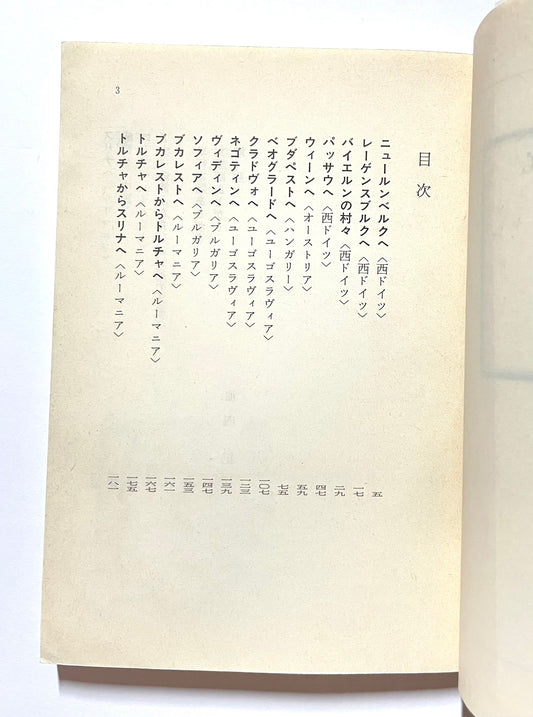 3
目次
ニュールンベルクへ〈西ドイツ〉 五
レーゲンスブルクへ〈西ドイツ〉 一七
バイエルンの村々〈西ドイツ〉 二九
パッサウへ〈西ドイツ〉 四七
ウィーンへ〈オーストリア〉 五九
ブダペストへ〈ハンガリー〉 七五
ベオグラードへ〈ユーゴスラヴィア〉 一〇七
クラドヴォへ〈ユーゴスラヴィア〉 一二三
ネゴティンへ〈ユーゴスラヴィア〉 一三九
ヴィディンへ〈ブルガリア〉 一四七
ソフィアへ〈ブルガリア〉 一五三
ブカレストへ〈ルーマニア〉 一六一
ブカレストからトルチャへ〈ルーマニア〉 一六七
トルチャへ〈ルーマニア〉 一七五
トルチャからスリナへ〈ルーマニア〉 一八一